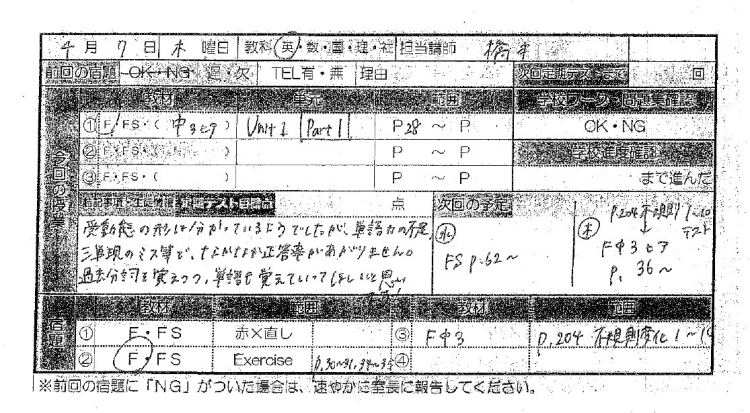 4月7日 木曜日 教科 英・数・国・理・社 担当講師 橋本
前回の宿題 OK・NG 遅・欠 TEL有・無 理由 次回定期テストまで 回
今回の授業 教材 単元 範囲 学校ワーク・問題集確認
① F・FS・( 中3ヒア ) Unit 1 Part 1 P28 ~ P OK・NG
② F・FS・( ) P ~ P 学校進度確認
③ F・FS・( ) P ~ P まで進んだ
定期テスト目標点 点 次回の予定
受動態の形は分かっているようでしたが、単語力の不足、
三単現のミス等で、なかなか正答率があがりません。
過去分詞を覚えつつ、単語も覚えていってほしいと思います!
㊌
FS p.62~
㊍
P.204 不規則 1~10
テスト
↓
F中3ヒア
p. 36~
宿題 教材 範囲 教材 範囲
① F・FS 赤×直し ③ F中3 p.204 不規則変化 1~10
② F・FS Exercise p.30~31, 34~35 ④
※前回の宿題に「NG」がついた場合は、速やかに室長に報告してください。